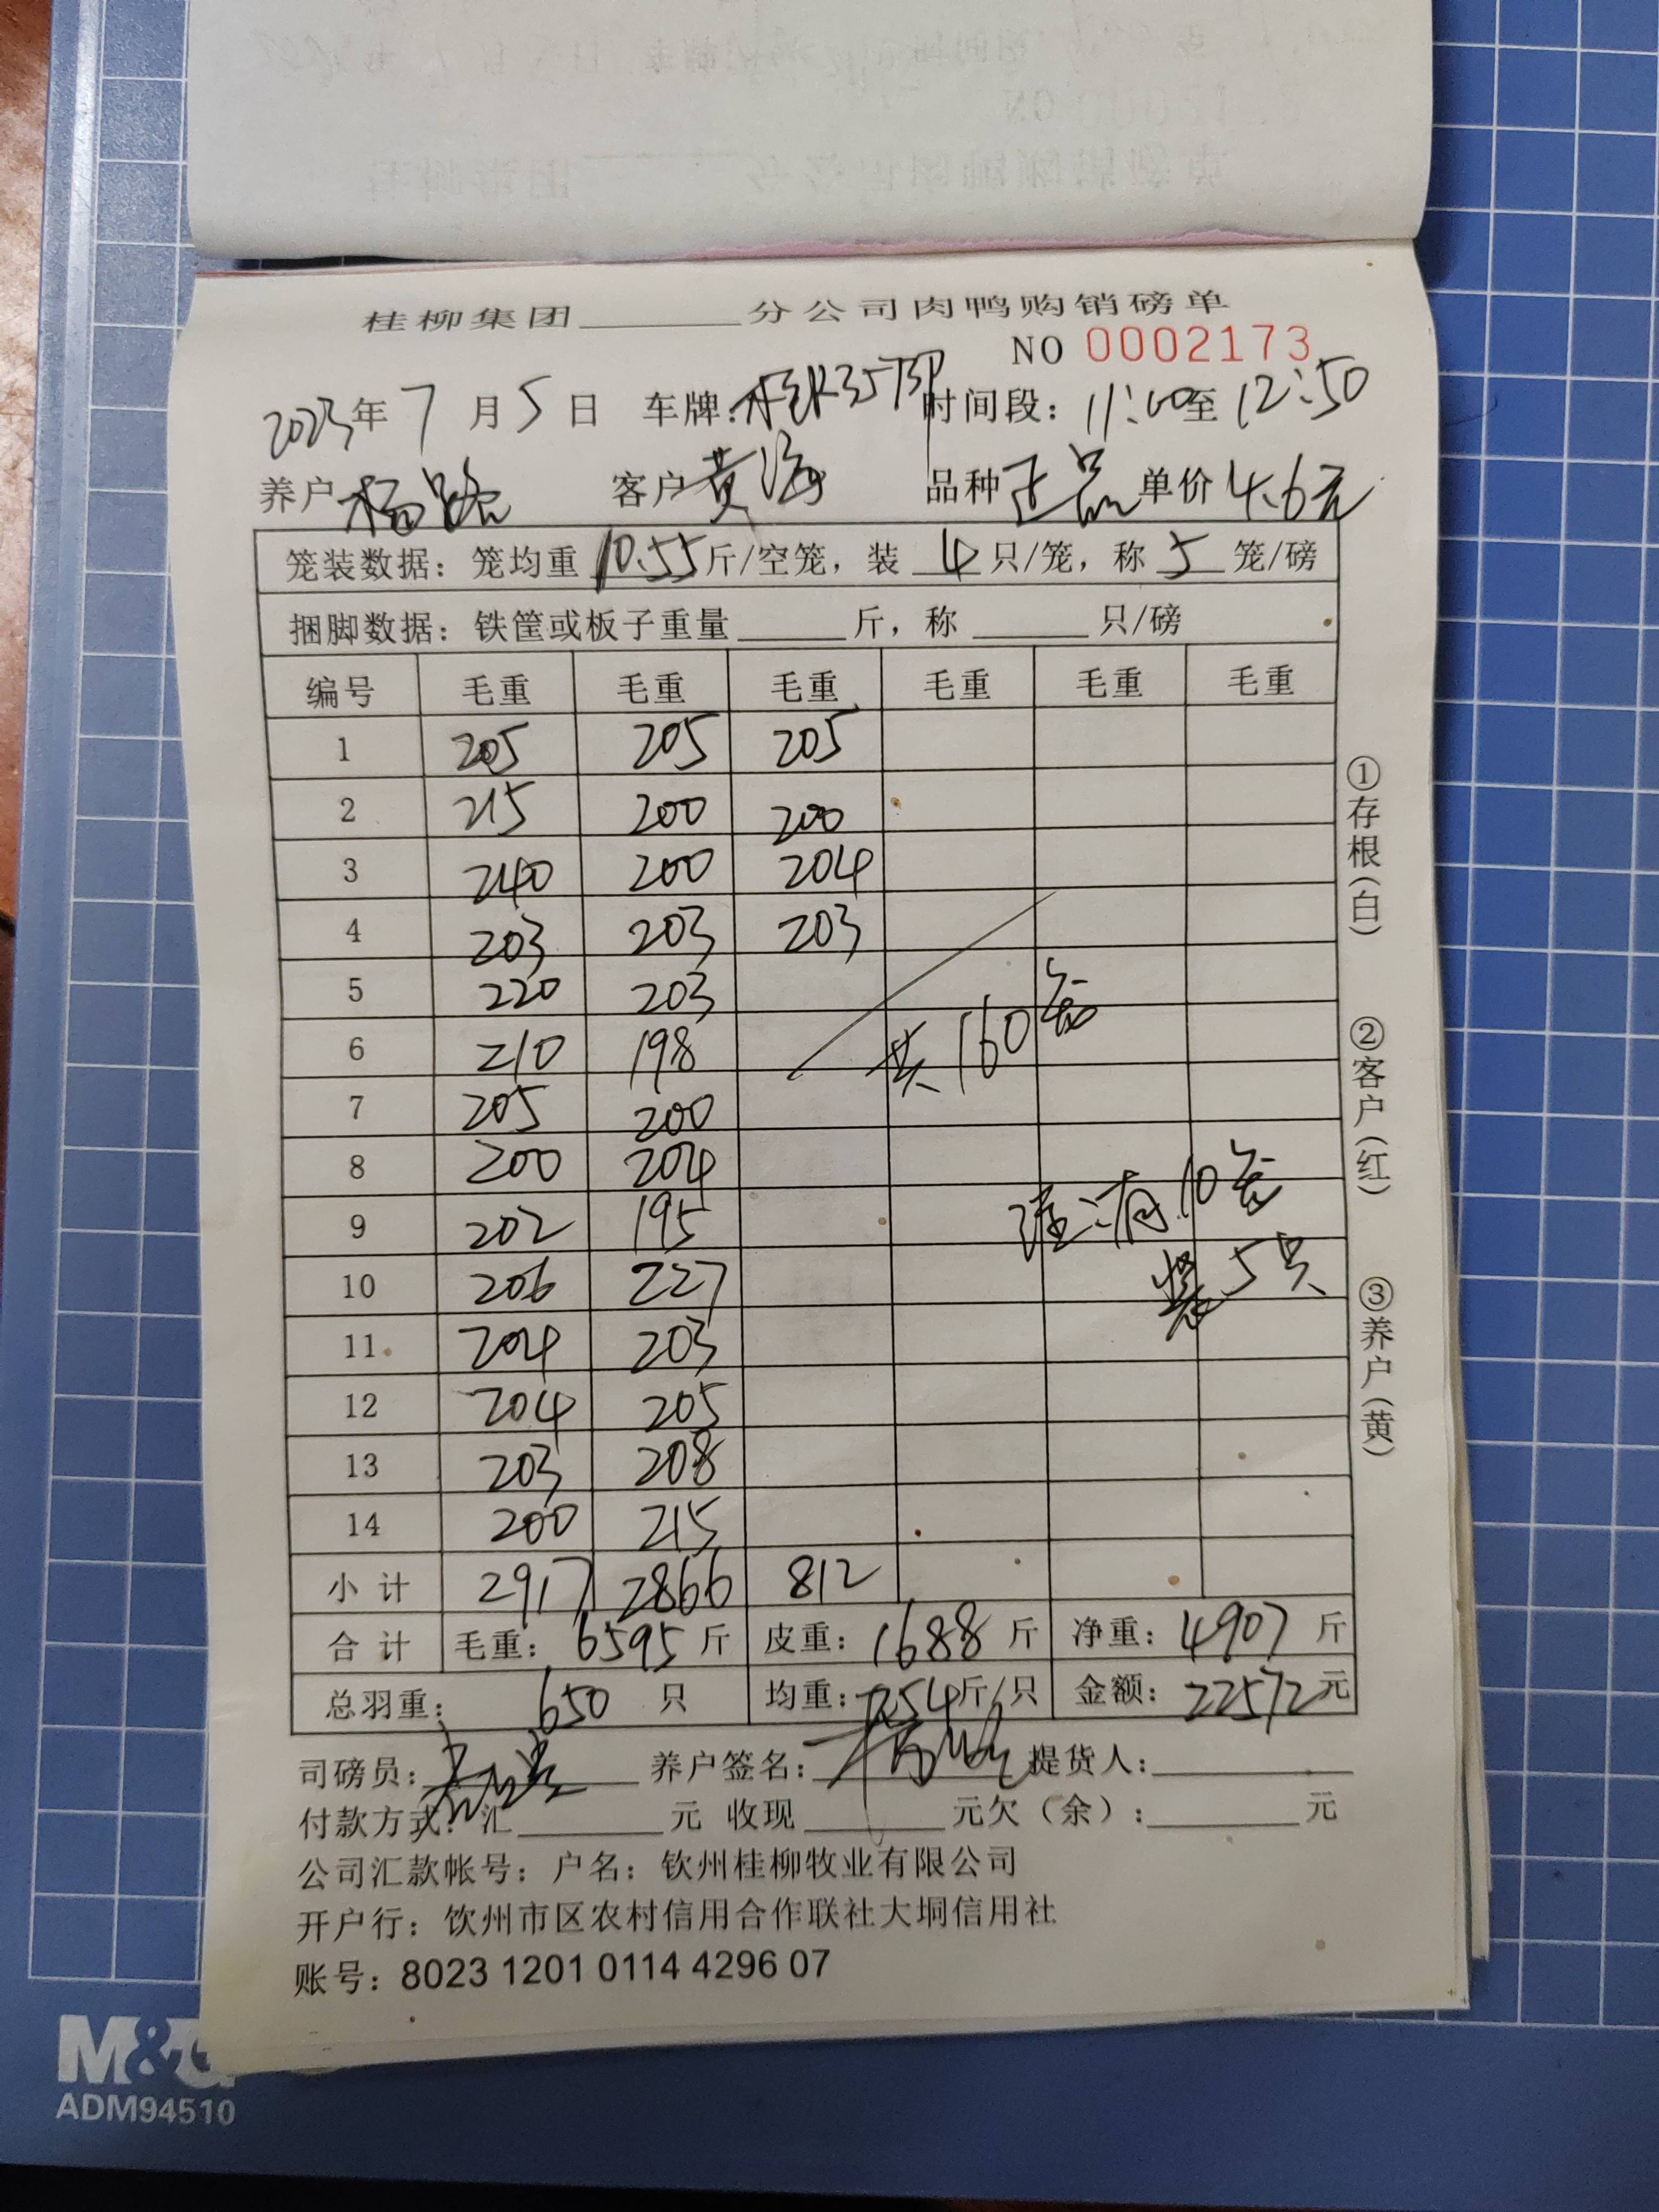 桂柳集团______分公司肉鸭购销磅单
NO 0002173
2023年 7 月 5 日 车牌: 时间段: 11:00至 12:50
养户 杨 客户 黄海 品种 正品 单价 4.6元
笼装数据: 笼均重 10.55 斤/空笼, 装 4 只/笼, 称 5 笼/磅
捆脚数据: 铁筐或板子重量______斤, 称______只/磅
编号 毛重 毛重 毛重 毛重 毛重 毛重
1 205 205 205
2 215 200 200
3 240 200 204
4 203 203 203
5 220 203
6 210 198
共160笼
7 205 200
8 200 204
9 202 195
注:有10笼
10 206 227
装5只
11 204 203
12 204 205
13 203 208
14 200 215
小 计 2917 2866 812
合 计 毛重: 6595 斤 皮重: 1688 斤 净重: 4907 斤
总羽重: 650 只 均重: 7.54 斤/只 金额: 22572 元
司磅员: 养户签名: 提货人:
付款方式: 汇______元 收现______元欠(余):______元
公司汇款帐号: 户名: 钦州桂柳牧业有限公司
开户行: 钦州市区农村信用合作联社大垌信用社
账号: 8023 1201 0114 4296 07
①存根(白)
②客户(红)
③养户(黄)
M&G
ADM94510